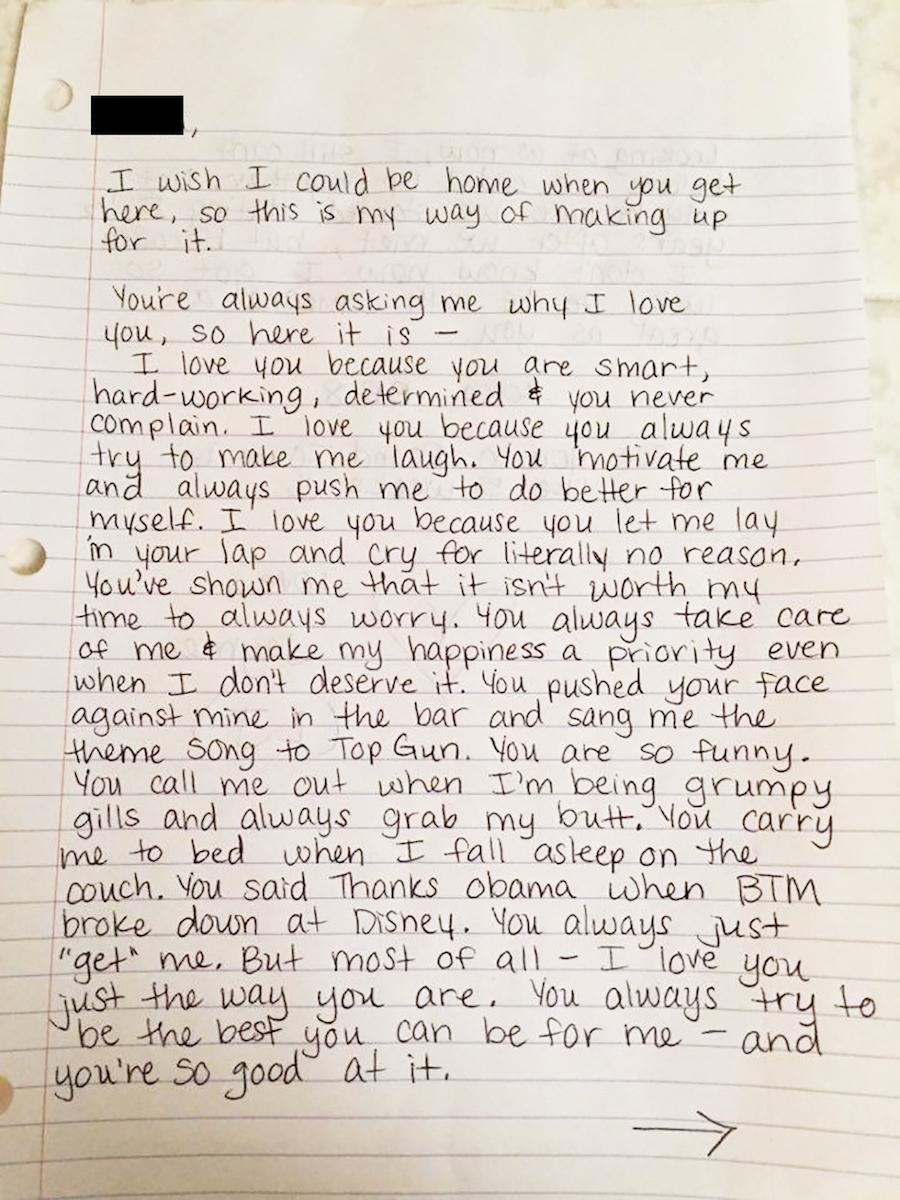 ,
I wish I could be home when you get
here, so this is my way of making up
for it.
You're always asking me why I love
you, so here it is —
I love you because you are smart,
hard-working, determined & you never
complain. I love you because you always
try to make me laugh. You motivate me
and always push me to do better for
myself. I love you because you let me lay
in your lap and cry for literally no reason.
You've shown me that it isn't worth my
time to always worry. You always take care
of me & make my happiness a priority even
when I don't deserve it. You pushed your face
against mine in the bar and sang me the
theme song to Top Gun. You are so funny.
You call me out when I'm being grumpy
gills and always grab my butt. You carry
me to bed when I fall asleep on the
couch. You said Thanks Obama when BTM
broke down at Disney. You always just
"get" me. But most of all – I love you
just the way you are. You always try to
be the best you can be for me – and
you're so good at it.
→